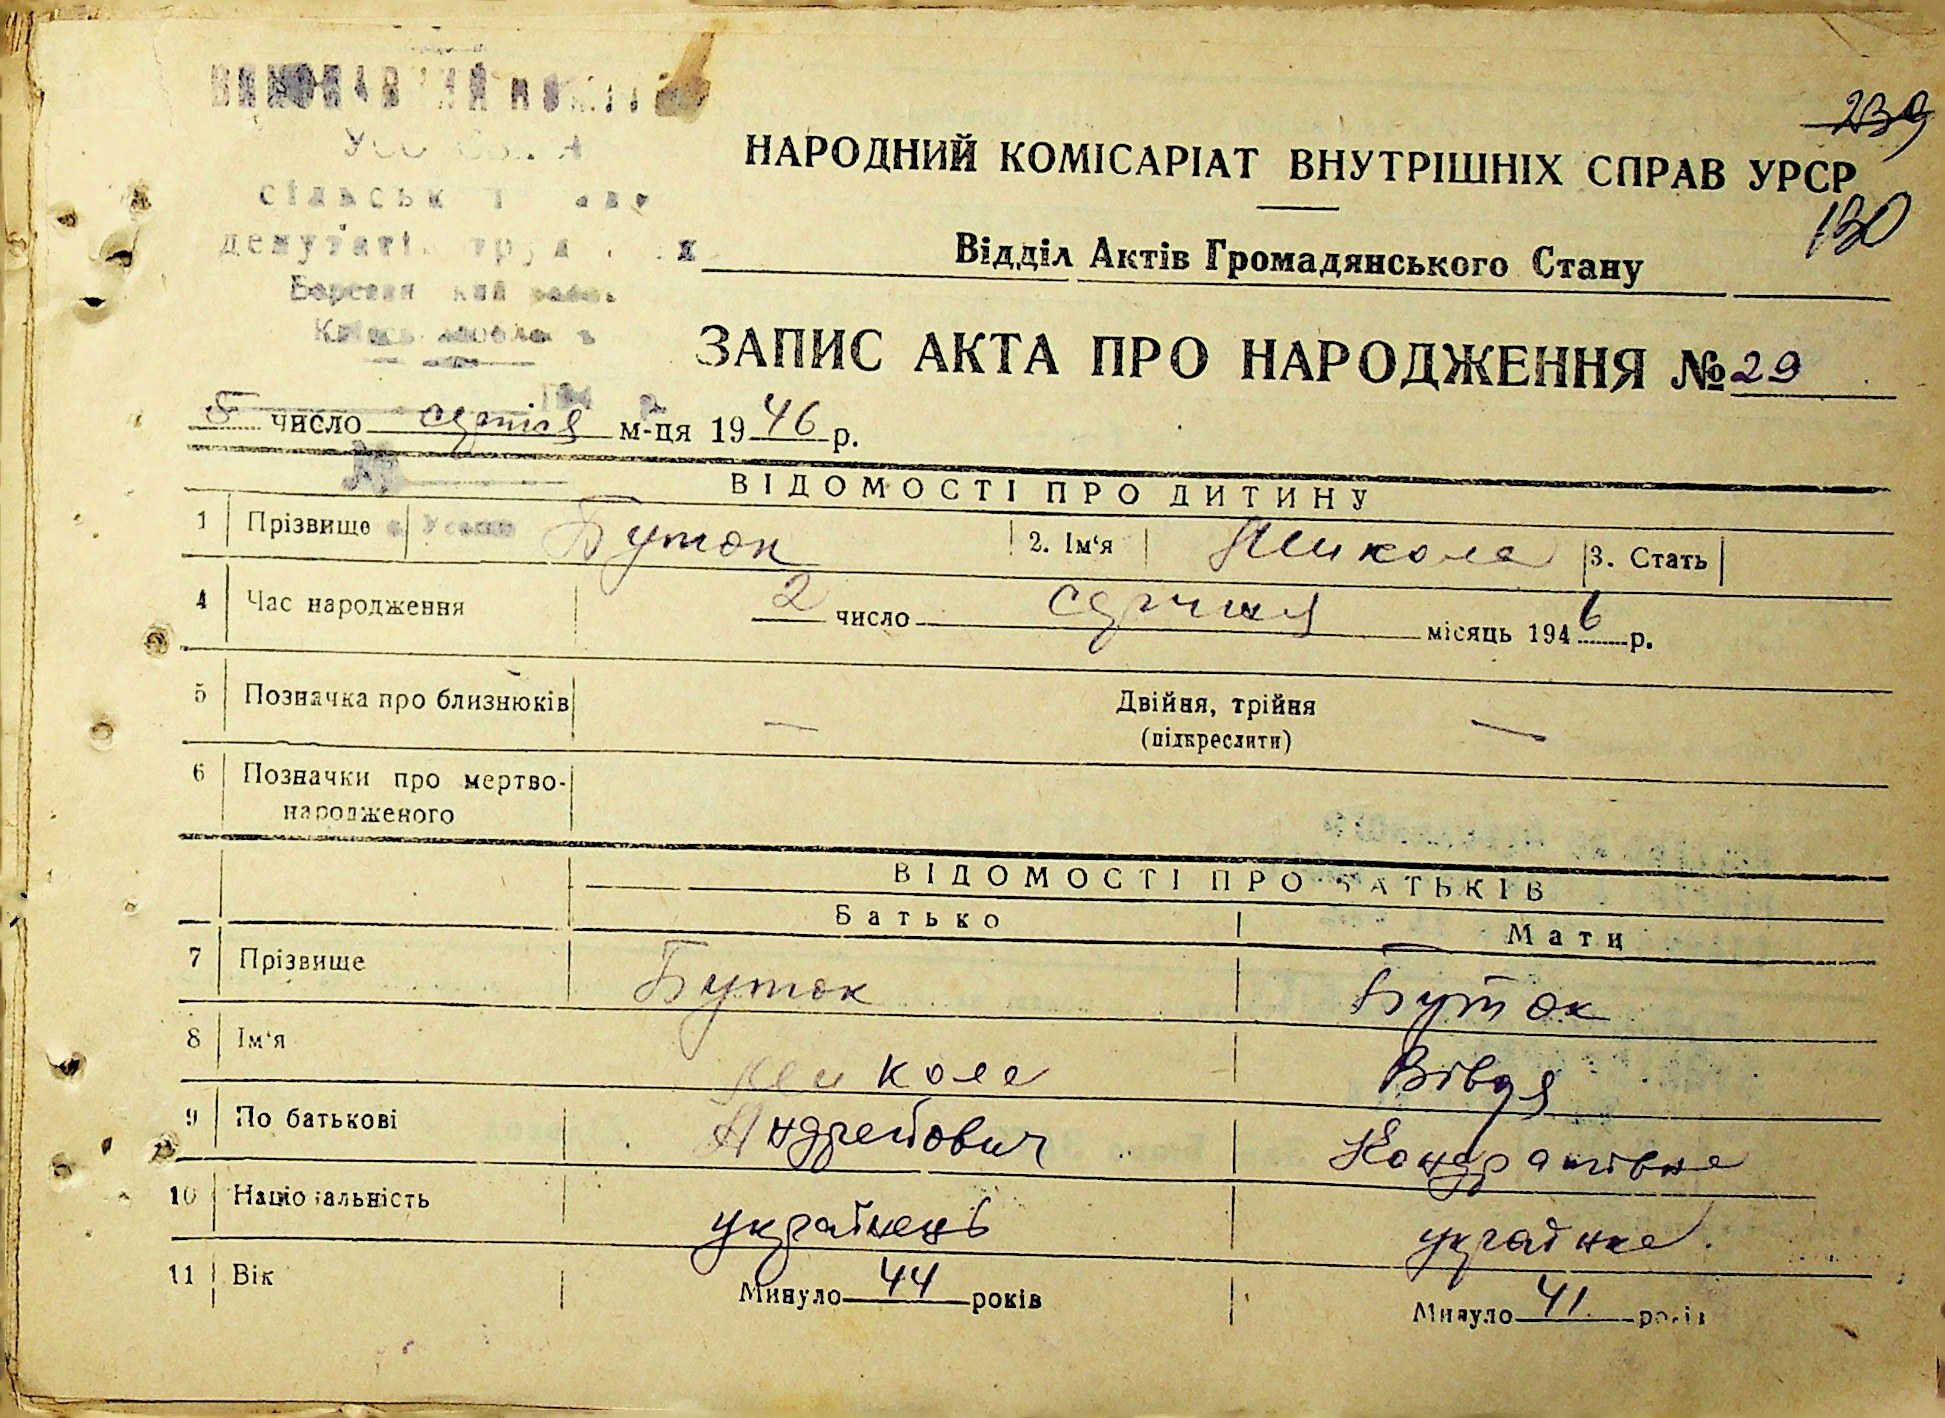 239
НАРОДНИЙ КОМІСАРІАТ ВНУТРІШНІХ СПРАВ УРСР
130
Відділ Актів Громадянського Стану
ЗАПИС АКТА ПРО НАРОДЖЕННЯ № 29
5 число серпня м-ця 1946 р.
ВІДОМОСТІ ПРО ДИТИНУ
1 Прізвище Буток 2. Ім'я Микола 3. Стать
4 Час народження 2 число серпня місяць 1946 р.
5 Позначка про близнюків — Двійня, трійня —
(підкреслити)
6 Позначки про мертво-
народженого
ВІДОМОСТІ ПРО БАТЬКІВ
Батько Мати
7 Прізвище Буток Буток
8 Ім'я Микола Вівдя
9 По батькові Андрейович Кондратівна
10 Національність українець українка
11 Вік Минуло 44 років Минуло 41 років